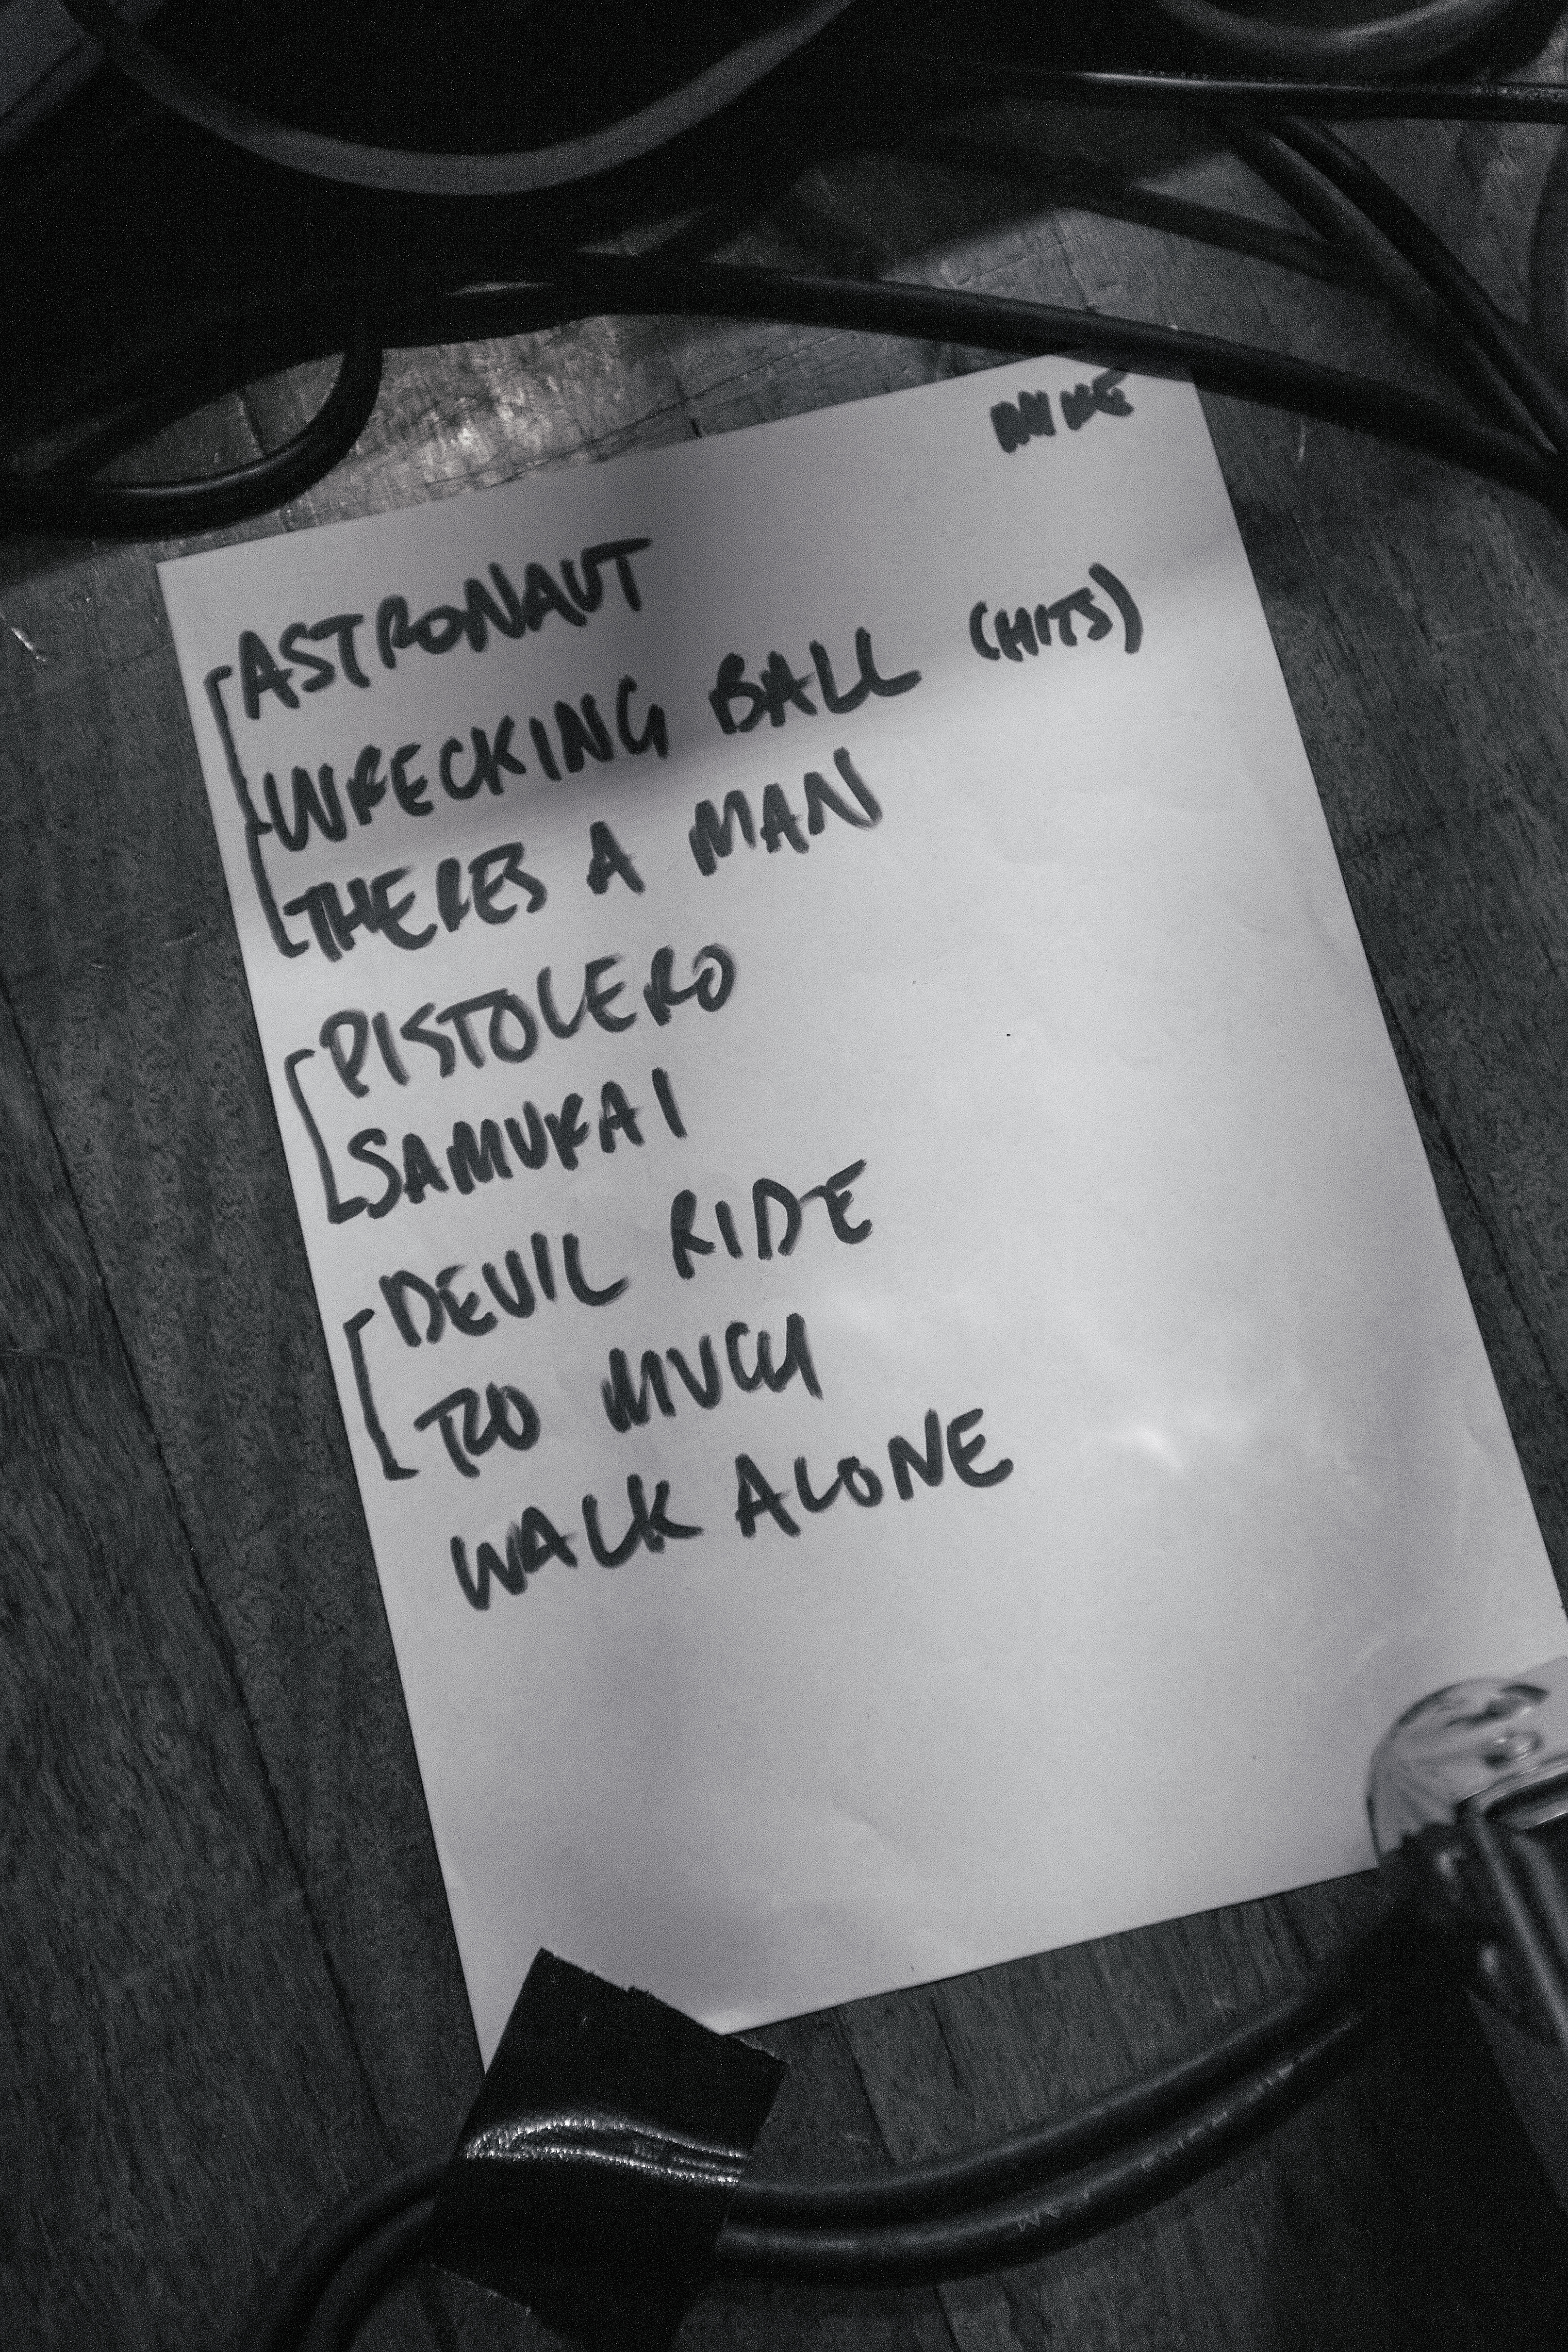 MIKE
ASTRONAUT
WRECKING BALL (HITS)
THERES A MAN
PISTOLERO
SAMURAI
DEVIL RIDE
TOO MUCH
WALK ALONE